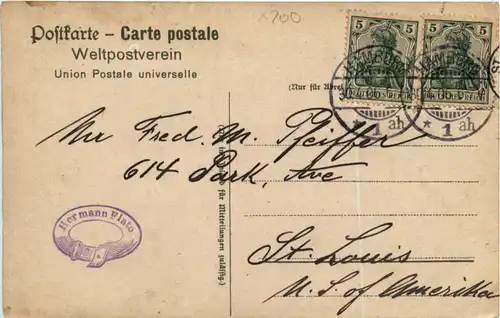 x700
Postkarte - Carte postale
Weltpostverein
Union Postale universelle
(Nur für
5 5
5 5
HAMBURG
* 1 ah
* 1 ah
Mr Fred. M. Pfeiffer
614 Park, Ave
St. Louis
U.S. of Amerika
Hermann Plato
für Mitteilungen zulässig.)